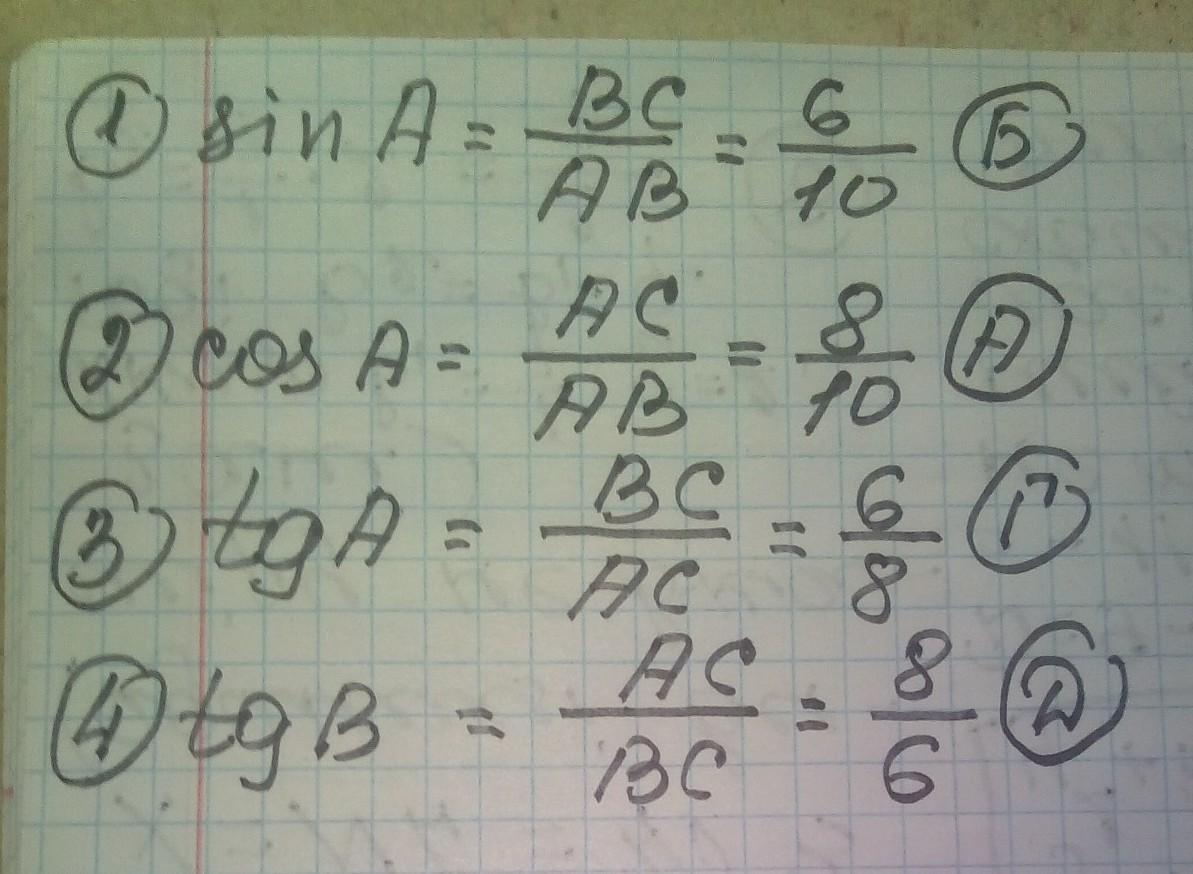 ① sin A = BC/AB = 6/10 Б
② cos A = AC/AB = 8/10 А
③ tg A = BC/AC = 6/8 Г
④ tg B = AC/BC = 8/6 Д